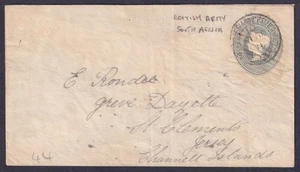 BRITISH ARMY
SOUTH AFRICA
E Rondel
Greve Dazette
St Clements
Jersey
Channell Islands
44